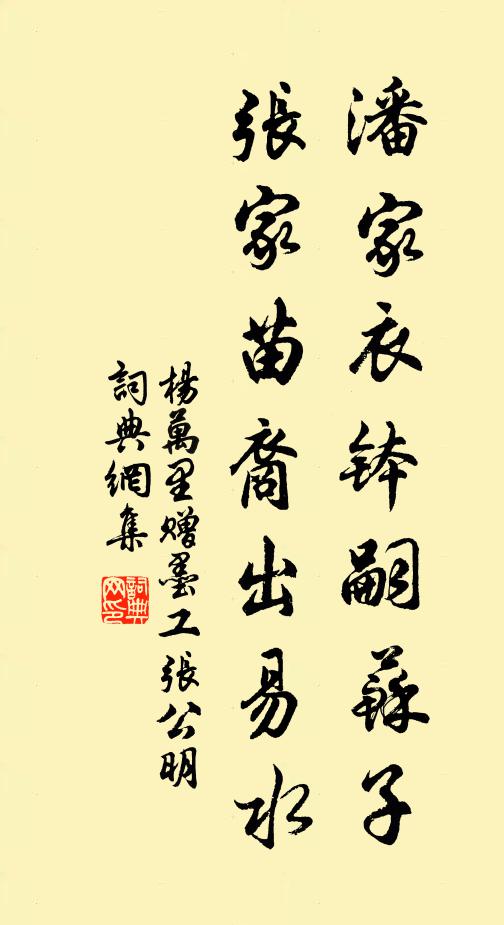 潘家衣鉢嗣蘇子
張家苗裔出易水
楊萬里贈墨工張公明
詞典網集